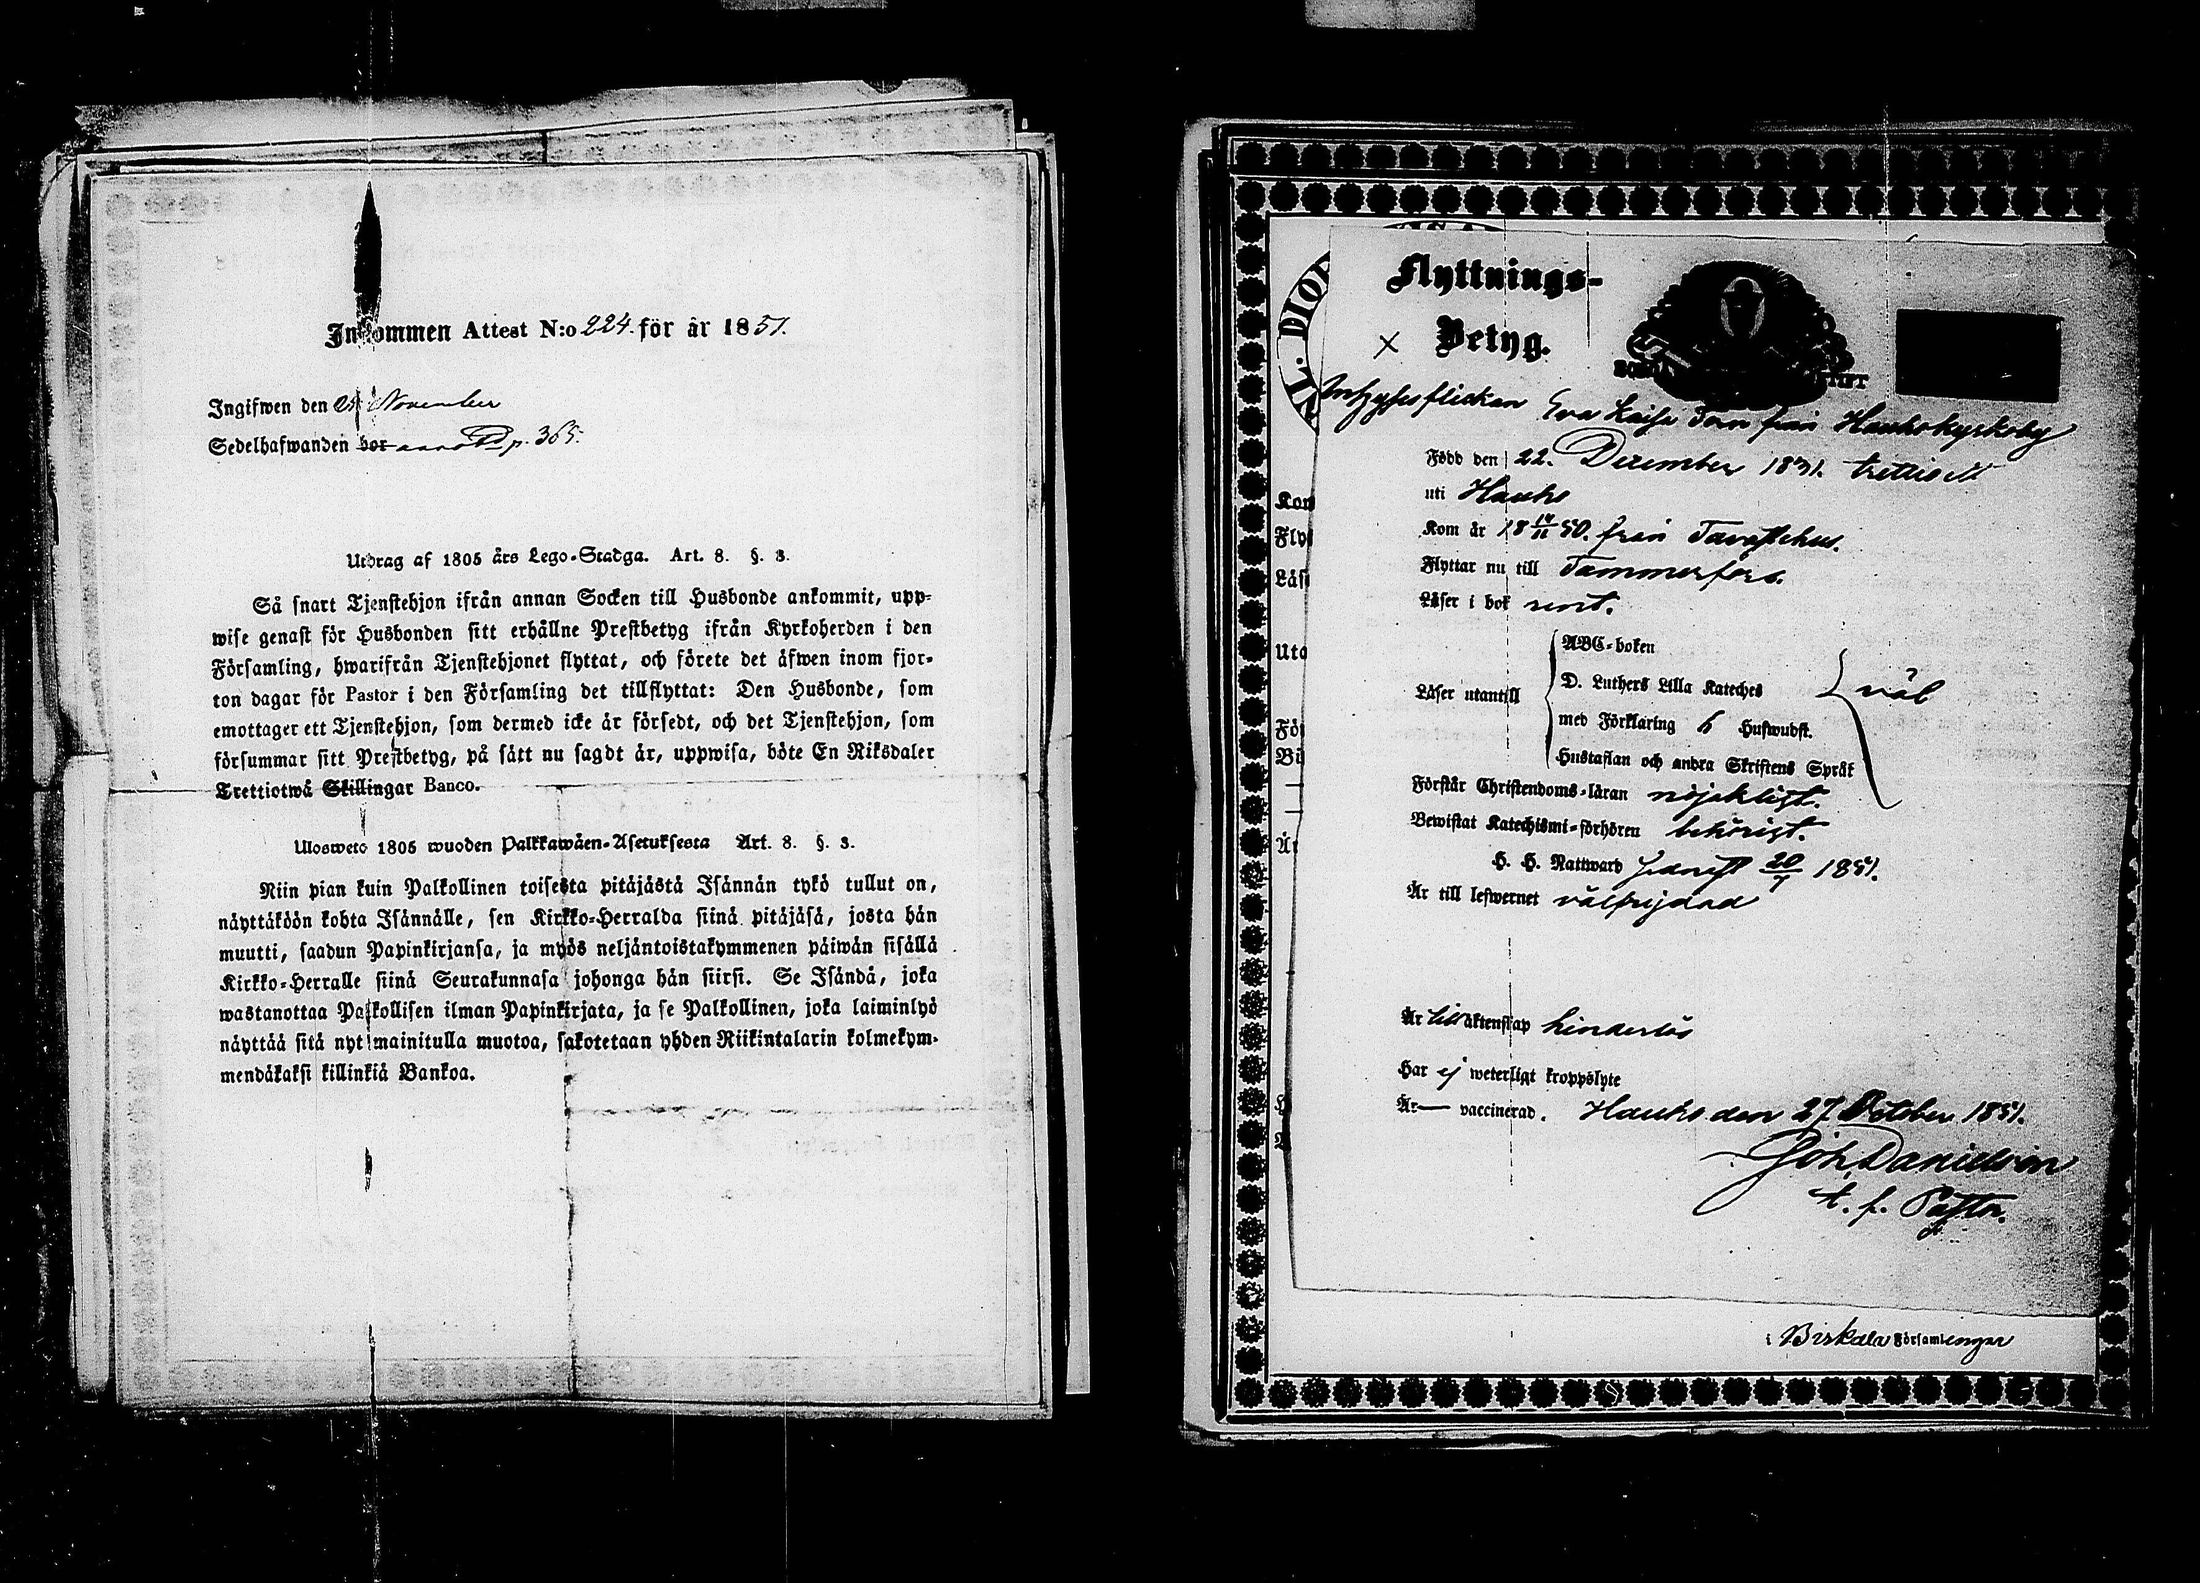 Inkommen Attest N:o 224. för år 1851.
Ingifwen den 25 November
Sedelhafwanden bor p. 365.
Utdrag af 1805 års Lego-Stadga. Art. 8. §. 3.
Så snart Tjenstehjon ifrån annan Socken till Husbonde ankommit, upp-
wise genast för Husbonden sitt erhållne Prestbetyg ifrån Kyrkoherden i den
Församling, hwarifrån Tjenstehjonet flyttat, och förete det äfwen inom fjor-
ton dagar för Pastor i den Församling det tillflyttat: Den Husbonde, som
emottager ett Tjenstehjon, som dermed icke är försedt, och det Tjenstehjon, som
försummar sitt Prestbetyg, på sätt nu sagdt är, uppwisa, böte En Riksdaler
Trettiotwå Skillingar Banco.
Ulosweto 1805 wuoden Palkkawäen-Asetuksesta Art. 8. §. 3.
Niin pian kuin Palkollinen toisesta pitäjästä Isännän tykö tullut on,
näyttäköön kohta Isännälle, sen Kirkko-Herralda siinä pitäjäsä, josta hän
muutti, saadun Papinkirjansa, ja myös neljäntoistakymmenen päiwän sisällä
Kirkko-Herralle siinä Seurakunnasa johonga hän siirsi. Se Isändä, joka
wastanottaa Palkollisen ilman Papinkirjata, ja se Palkollinen, joka laiminlyö
näyttää sitä nyt mainitulla muotoa, sakotetaan yhden Riikintalarin kolmekym-
mendäkaksi killinkiä Bankoa.
L. DIOR
Flyttnings-
Betyg.
Inhysesflickan Eva Kaisa Torn från Hauho kyrkoby
Född den 22. December 1831. trettio ett
uti Hauho
Kom år 18 14/11 50. från Tavastehus.
Flyttar nu till Tammerfors.
Läser i bok rent.
ABC-boken
D. Luthers Lilla Kateches
Läser utantill väl
med Förklaring h Hufwudst.
Hustaflan och andra Skriftens Språk
Förstår Christendoms-läran nöjaktigt.
Bewistat Katechismi-förhören behörigt.
H. H. Nattward sednast 20/7 1851.
Är till lefwernet välfrejdad
Är till äktenskap hinderlös
Har ej weterligt kroppslyte
Är — vaccinerad. Hauho den 27 October 1851.
Joh Danielson
t. f. Pastor.
i Birkala Församlingar
Kom
Flyt
Läse
Uta
För
Bi
Är